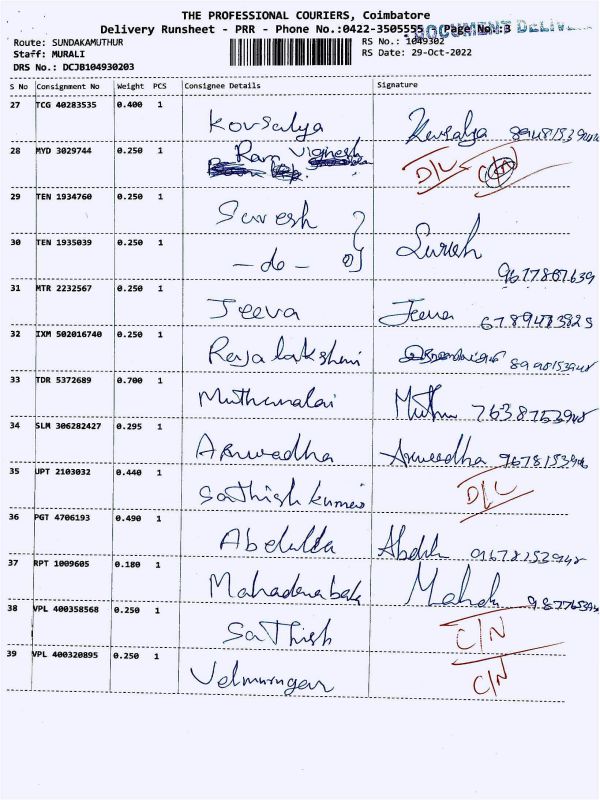 THE PROFESSIONAL COURIERS, Coimbatore
Delivery Runsheet - PRR - Phone No.:0422-3505555 Page No.:3
DOCUMENT DELIV
Route: SUNDAKAMUTHUR RS No.: 1049302
Staff: MURALI RS Date: 29-Oct-2022
DRS No.: DCJB104930203
S No Consignment No Weight PCS Consignee Details Signature
27 TCG 40283535 0.400 1 Kousalya Kousalya
28 MYD 3029744 0.250 1 Ram Vignesh D/L C/N
29 TEN 1934760 0.250 1 Suresh
30 TEN 1935039 0.250 1 - do - Suresh 9677867639
31 MTR 2232567 0.250 1 Jeeva Jeeva
32 IXM 502016740 0.250 1 Rajalakshmi
33 TDR 5372689 0.700 1 Muthumalai Muthu 7638753948
34 SLM 306282427 0.295 1 Anuradha Anuradha
35 UPT 2103032 0.440 1 Sathish kumar D/L
36 PGT 4706193 0.490 1 Abdulla Abdul
37 RPT 1009605 0.180 1 Mahadevabala
38 VPL 400358568 0.250 1 Sathish C/N
39 VPL 400320895 0.250 1 Velmurugan C/N